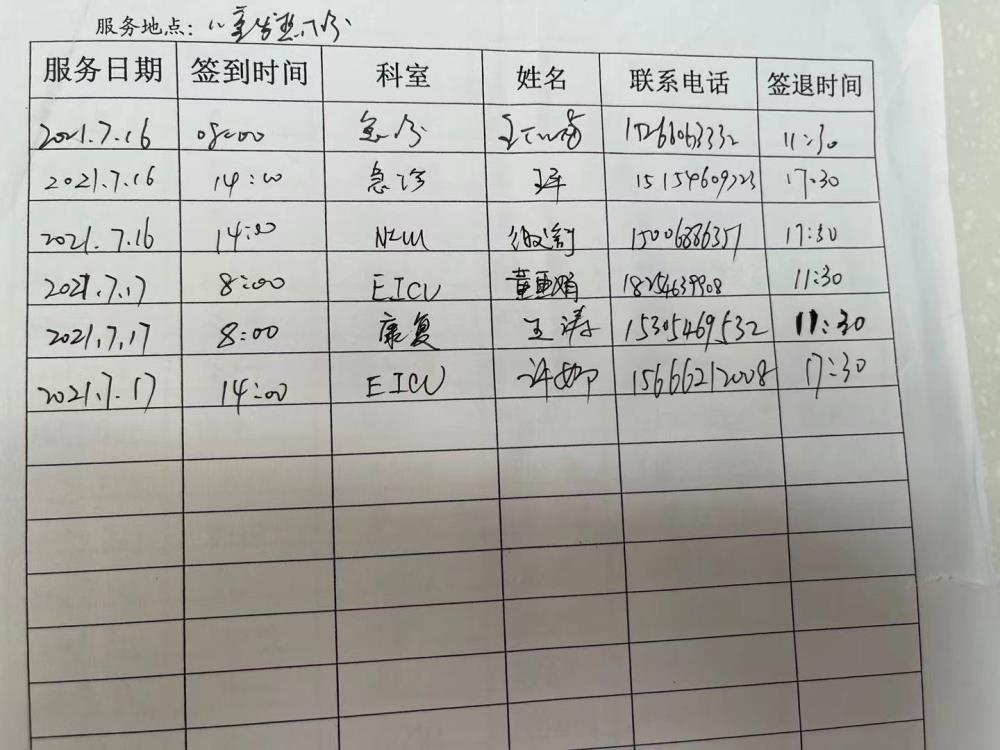 服务地点：儿童发热门诊
服务日期 签到时间 科室 姓名 联系电话 签退时间
2021.7.16 08:00 急诊 11:30
2021.7.16 14:00 急诊 17:30
2021.7.16 14:00 15006886357 17:30
2021.7.17 8:00 EICU 黄亚娟 18254639908 11:30
2021.7.17 8:00 康复 王涛 15305469532 11:30
2021.7.17 14:00 EICU 许娜 15666212008 17:30